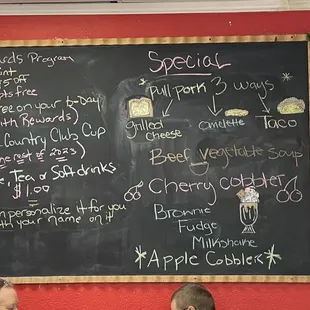 ards Program
int
5 off
ts free
ree on your b-Day
ith Rewards)
Country Club Cup
he rest of 2023)
e, Tea or Soft drinks
$1.00
n personalize it for you
ith your name on it!
Special
*Pull pork 3 ways*
grilled cheese
omelette
Taco
Beef vegetable soup
Cherry cobbler
Brownie
Fudge
Milkshake
*Apple Cobbler*